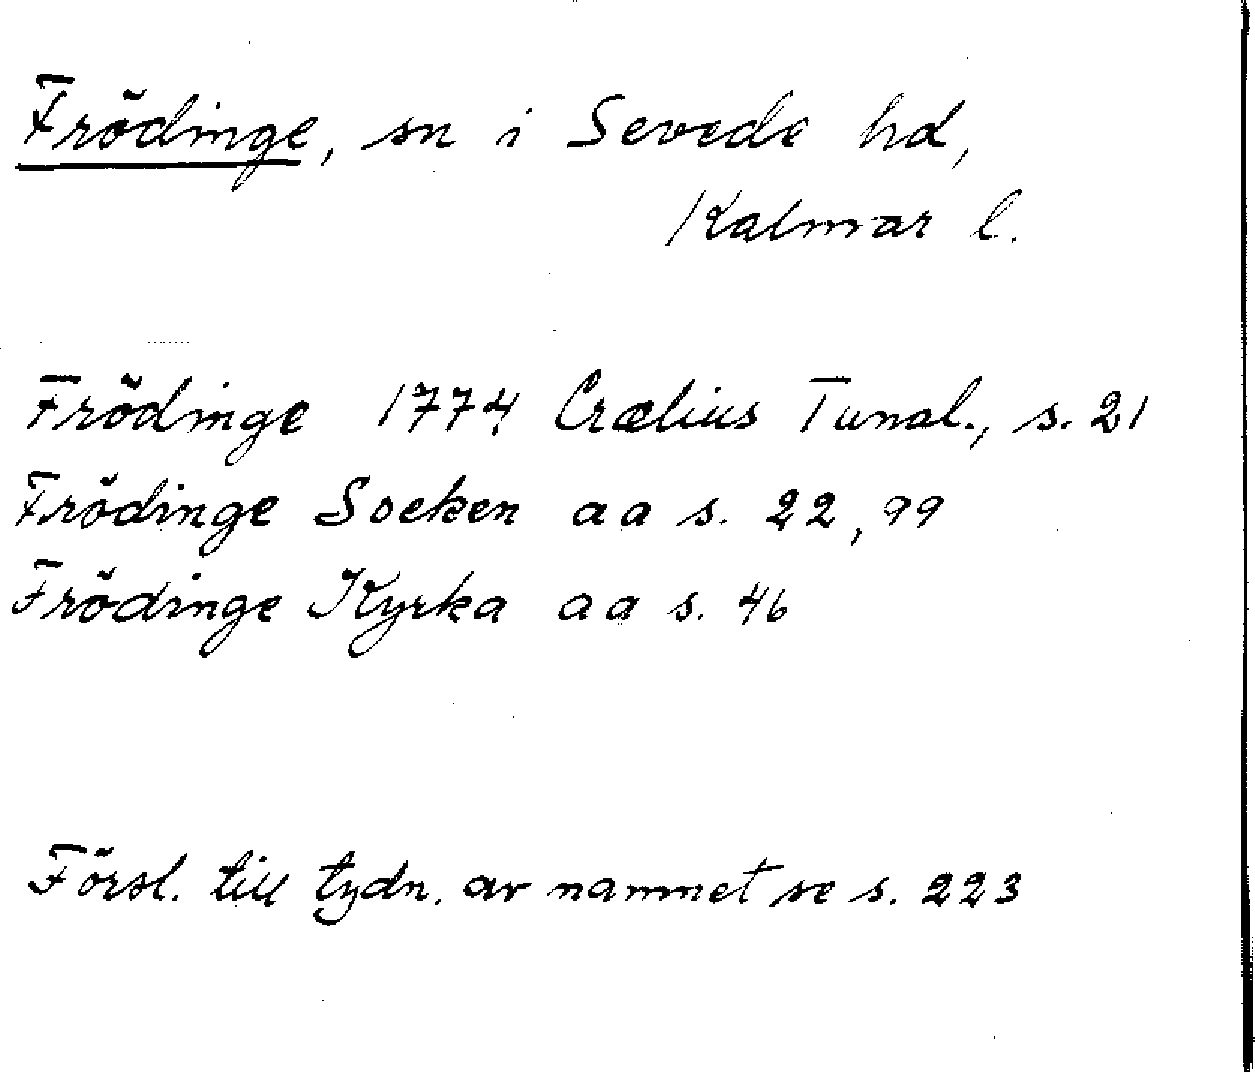 Frödinge, sn i Sevede hd,
Kalmar l.
Frödinge 1774 Crælius Tunal., s. 21
Frödinge Socken aa s. 22, 99
Frödinge Kyrka aa s. 46
Försl. till tydn. av namnet se s. 223